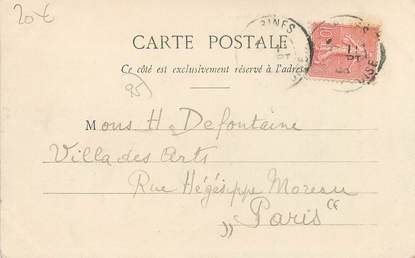 20€
CARTE POSTALE
Ce côté est exclusivement réservé à l'adres
95
Mons H. Defontaine
Villa des Arts
Rue Hégésippe Moreau
"Paris"